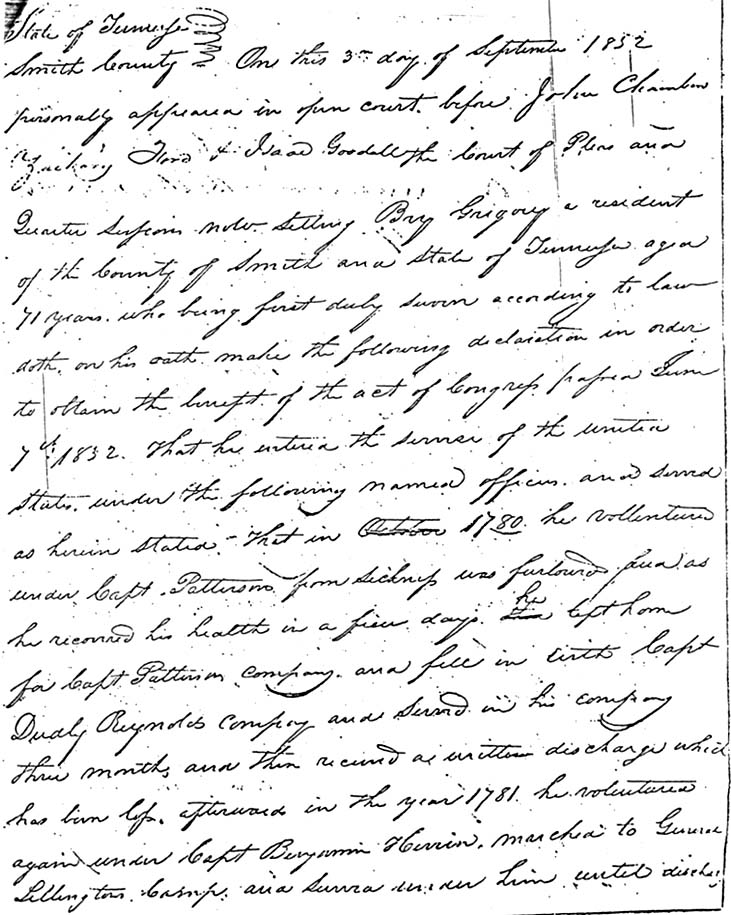 State of Tennessee
Smith County On this 3rd day of September 1832
personally appeared in open court before John Chambers
Zachary Ford & Isaac Goodall the Court of Pleas and
Quarter Sessions now sitting Bry Gregory a resident
of the County of Smith and State of Tennessee aged
71 years who being first duly sworn according to law
doth on his oath make the following declaration in order
to obtain the benefit of the act of Congress passed June
7th 1832. That he entered the service of the united
States under the following named officers and served
as herein stated. That in October 1780 he vollentured
under Capt. Patterson from sickness was furloured and as
he recovred his health in a fiew days he left home
for Capt Patterson company and fell in with Capt
Dudly Reynolds company and served in his company
three months and then received a written discharge which
has been lost. afterwards in the year 1781 he volentured
again under Capt Benjamin Herrin. marched to General
Lillingtons Camp. and served under him until discha